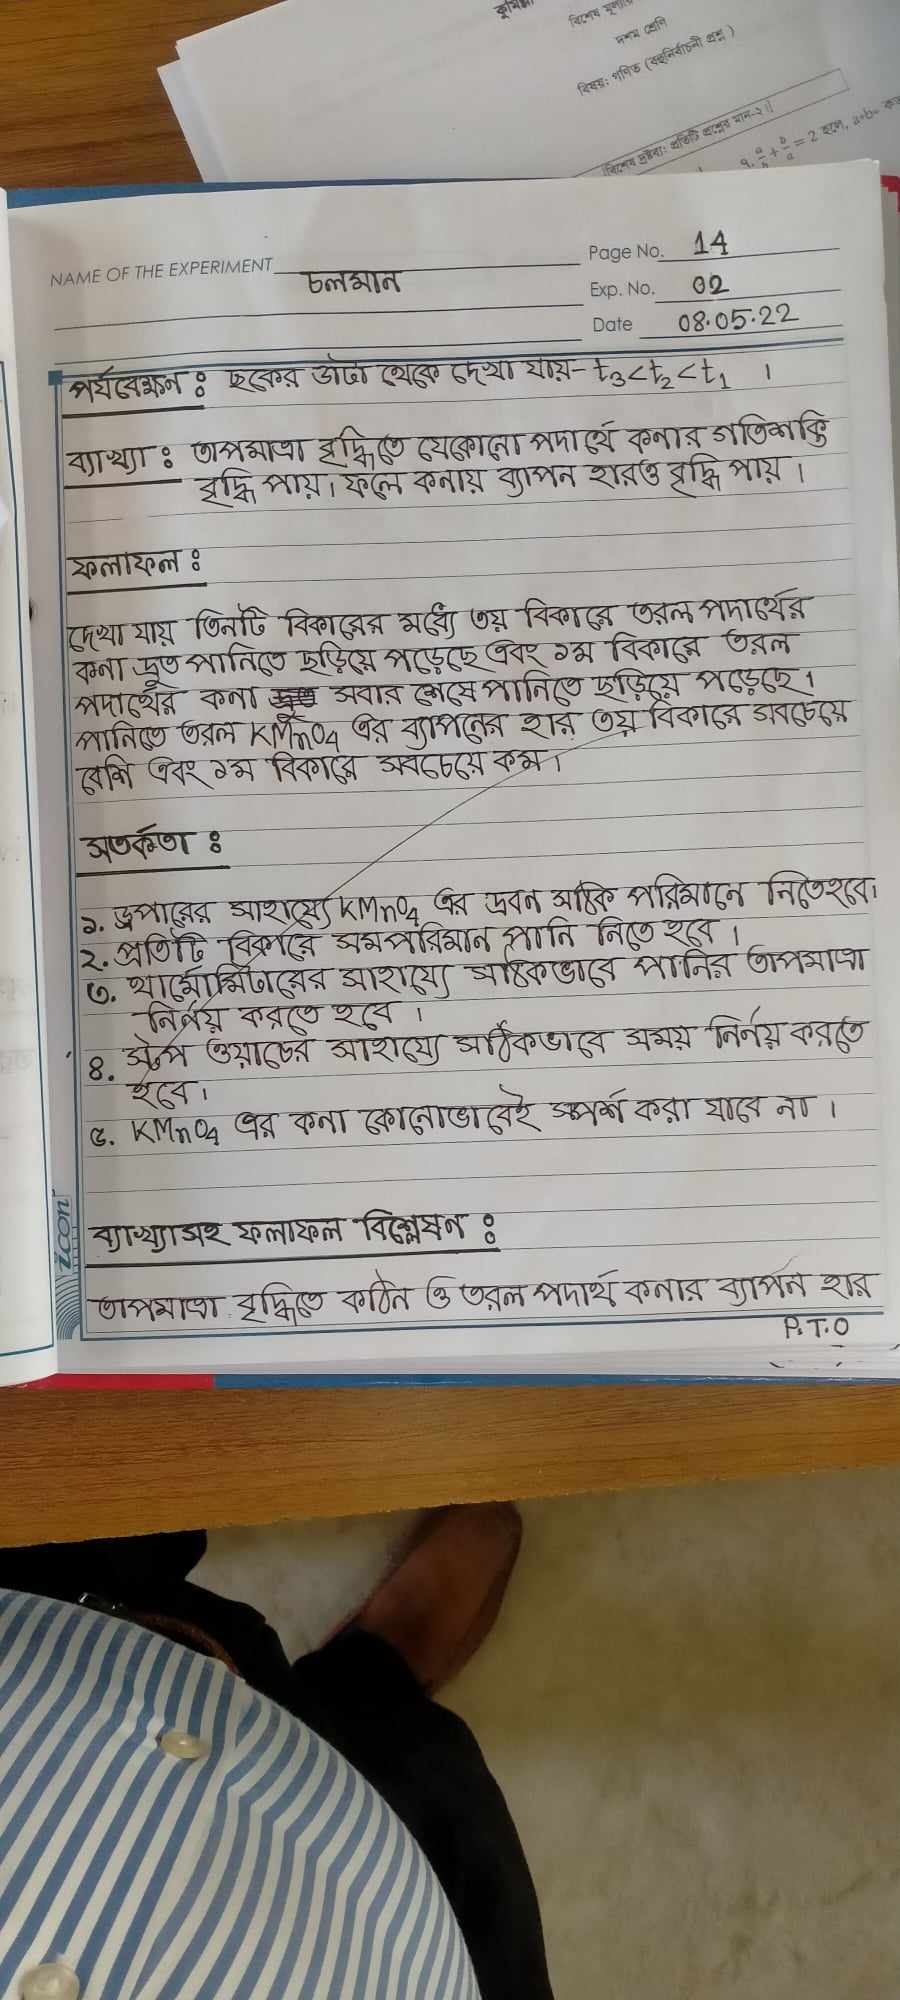 কুমিল্লা
বিশেষ মূল্যা
দশম শ্রেণি
বিষয়: গণিত (বহুনির্বাচনী প্রশ্ন)
[বিশেষ দ্রষ্টব্য: প্রতিটি প্রশ্নের মান-১।]
a/b + b/a = 2 হলে, a+b=
NAME OF THE EXPERIMENT চলমান
Page No. 14
Exp. No. 02
Date 08.05.22
পর্যবেক্ষন : ছকের ডাটা থেকে দেখা যায়- t₃<t₂<t₁ ।
ব্যাখ্যা : তাপমাত্রা বৃদ্ধিতে যেকোনো পদার্থে কনার গতিশক্তি
বৃদ্ধি পায়। ফলে কনায় ব্যাপন হারও বৃদ্ধি পায় ।
ফলাফল :
দেখা যায় তিনটি বিকারের মধ্যে ৩য় বিকারে তরল পদার্থের
কনা দ্রুত পানিতে ছড়িয়ে পড়েছে এবং ১ম বিকারে তরল
পদার্থের কনা সবার শেষে পানিতে ছড়িয়ে পড়েছে।
পানিতে তরল KMnO₄ এর ব্যাপনের হার ৩য় বিকারে সবচেয়ে
বেশি এবং ১ম বিকারে সবচেয়ে কম।
সতর্কতা :
১. ড্রপারের সাহায্যে KMnO₄ এর দ্রবন সঠিক পরিমানে নিতেহবে।
২. প্রতিটি বিকারে সমপরিমান পানি নিতে হবে ।
৩. থার্মোমিটারের সাহায্যে সঠিকভাবে পানির তাপমাত্রা
নির্নয় করতে হবে ।
৪. স্টপ ওয়াচের সাহায্যে সঠিকভাবে সময় নির্নয় করতে
হবে।
৫. KMnO₄ এর কনা কোনোভাবেই স্পর্শ করা যাবে না ।
ব্যাখ্যাসহ ফলাফল বিশ্লেষন :
তাপমাত্রা বৃদ্ধিতে কঠিন ও তরল পদার্থ কনার ব্যাপন হার
P.T.O
icon